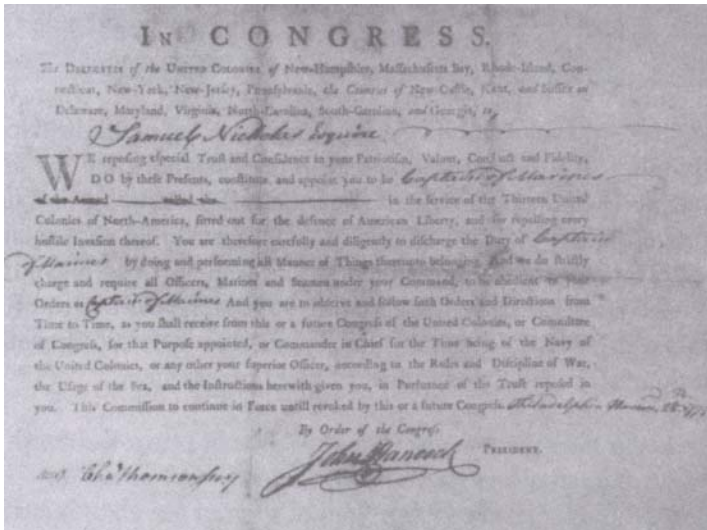 IN CONGRESS.
The DELEGATES of the UNITED COLONIES of New-Hampshire, Massachusetts Bay, Rhode-Island, Con-
necticut, New-York, New-Jersey, Pennsylvania, the Counties of New-Castle, Kent, and Sussex on
Delaware, Maryland, Virginia, North-Carolina, South-Carolina, and Georgia, to
Samuel Nicholas Esquire
WE reposing especial Trust and Confidence in your Patriotism, Valour, Conduct and Fidelity,
DO by these Presents, constitute and appoint you to be Captain of Marines
of the Armed called the in the service of the Thirteen United
Colonies of North-America, fitted out for the defence of American Liberty, and for repelling every
hostile Invasion thereof. You are therefore carefully and diligently to discharge the Duty of Captain
of Marines by doing and performing all Manner of Things thereunto belonging. And we do strictly
charge and require all Officers, Marines and Seamen under your Command, to be obedient to your
Orders as Captain of Marines And you are to observe and follow such Orders and Directions from
Time to Time, as you shall receive from this or a future Congress of the United Colonies, or Committee
of Congress, for that Purpose appointed, or Commander in Chief for the Time being of the Navy of
the United Colonies, or any other your superior Officer, according to the Rules and Discipline of War,
the Usage of the Sea, and the Instructions herewith given you, in Pursuance of the Trust reposed in
you. This Commission to continue in Force untill revoked by this or a future Congress. Philadelphia 28th 1775
By Order of the Congress
John Hancock PRESIDENT.
Attest Chas Thomson secy